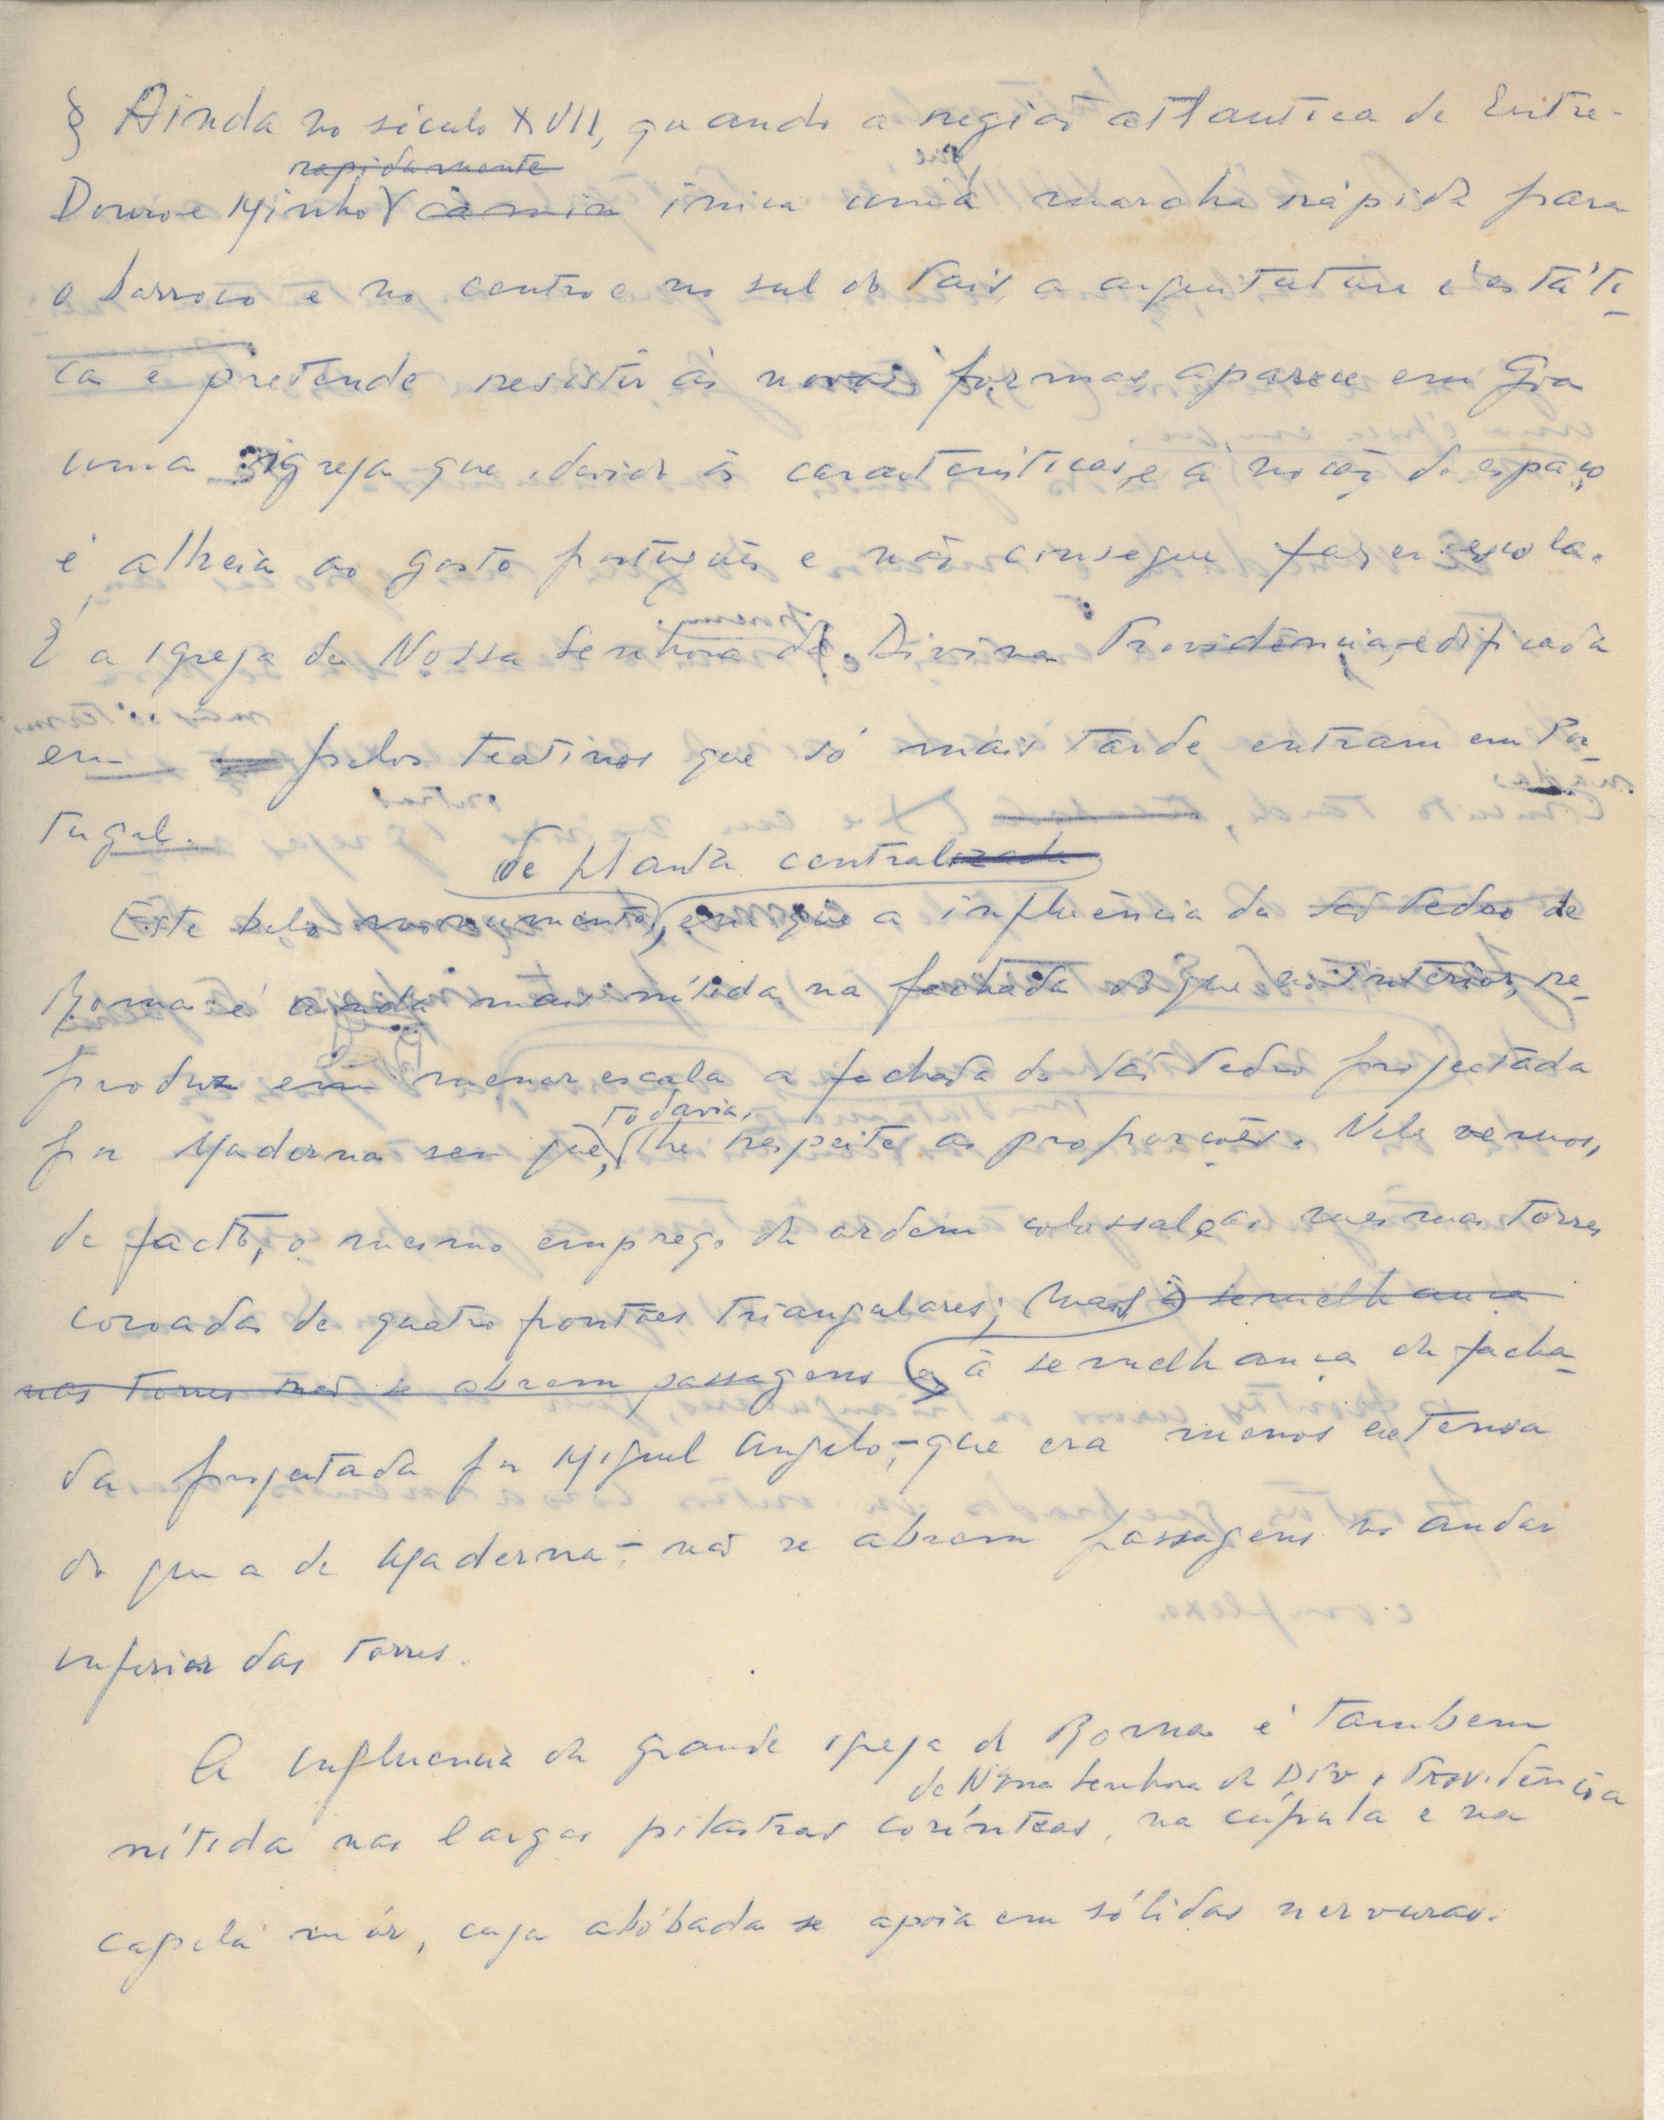 § Ainda no século XVII, quando a região atlantica de Entre-
rapidamente
Douro e Minho camin inicia uma marcha rápida para
o barroco e no centro e no sul do País, a arquitetura é estáti-
ca e pretende resistir às novas formas, aparece em Goa
uma igreja que, devido às características e à noção do espaço
é alheia ao gosto português e não consegue fazer escola.
É a igreja de Nossa Senhora da Divina Providência, edificada
em pelos teatinos que só mais tarde entram em Por-
tugal.
de planta centralizada
Este belo monumento, em que a influência de São Pedro de
Roma é ainda mais nítida na fachada do que no interior, re-
produz em menor escala a fachada de São Pedro projectada
todavia,
por Maderna sem que, lhe respeite as proporções. Nele vemos,
de facto, o mesmo emprego da ordem colossal, as mesmas torres
coroadas de quatro frontões triangulares; mas à semelhança
nas torres não se abrem passagens e à semelhança da facha-
da projectada por Miguel Angelo, - que era menos extensa
do que a de Maderna - não se abrem passagens no andar
inferior das torres.
A influencia da grande igreja de Roma é tambem
de Nossa Senhora da Div. Providência
nítida nas largas pilastras coríntias, na cúpula e na
capela mór, cuja abóbada se apoia em sólidas nervuras.